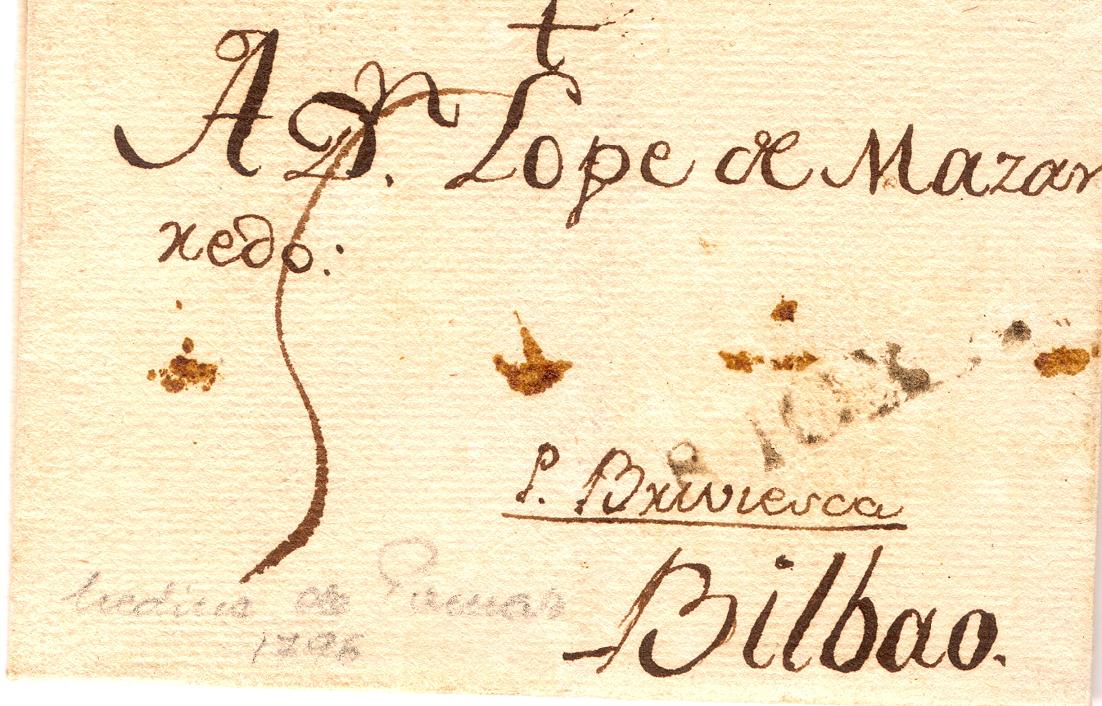 A Dn. Lope de Mazar
redo:
P. Briviesca
Bilbao.
Medina de Pomar
1796